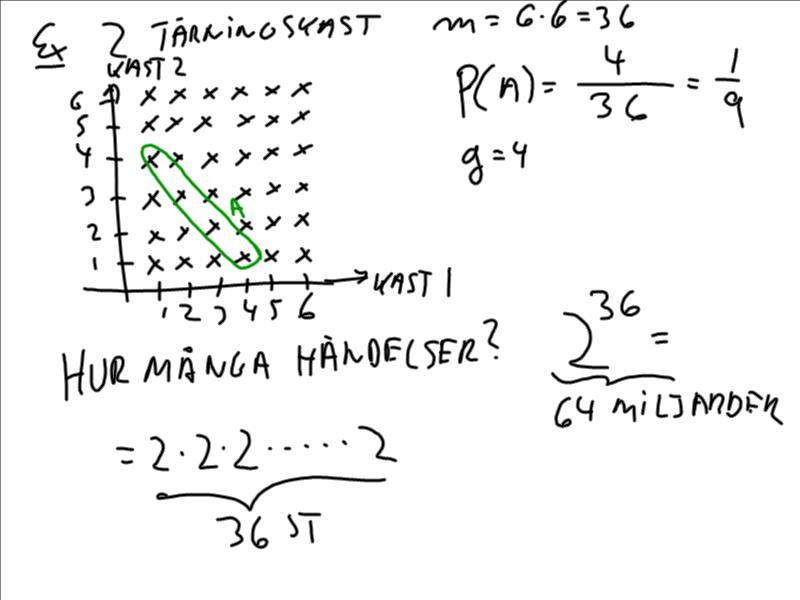 Ex 2 TÄRNINGSKAST
m = 6·6 = 36
KAST 2
P(A) = 4/36 = 1/9
g = 4
6
5
4
3
A
2
1
KAST 1
1 2 3 4 5 6
HUR MÅNGA HÄNDELSER?
2^36 =
64 MILJARDER
= 2·2·2·.....2
36 ST